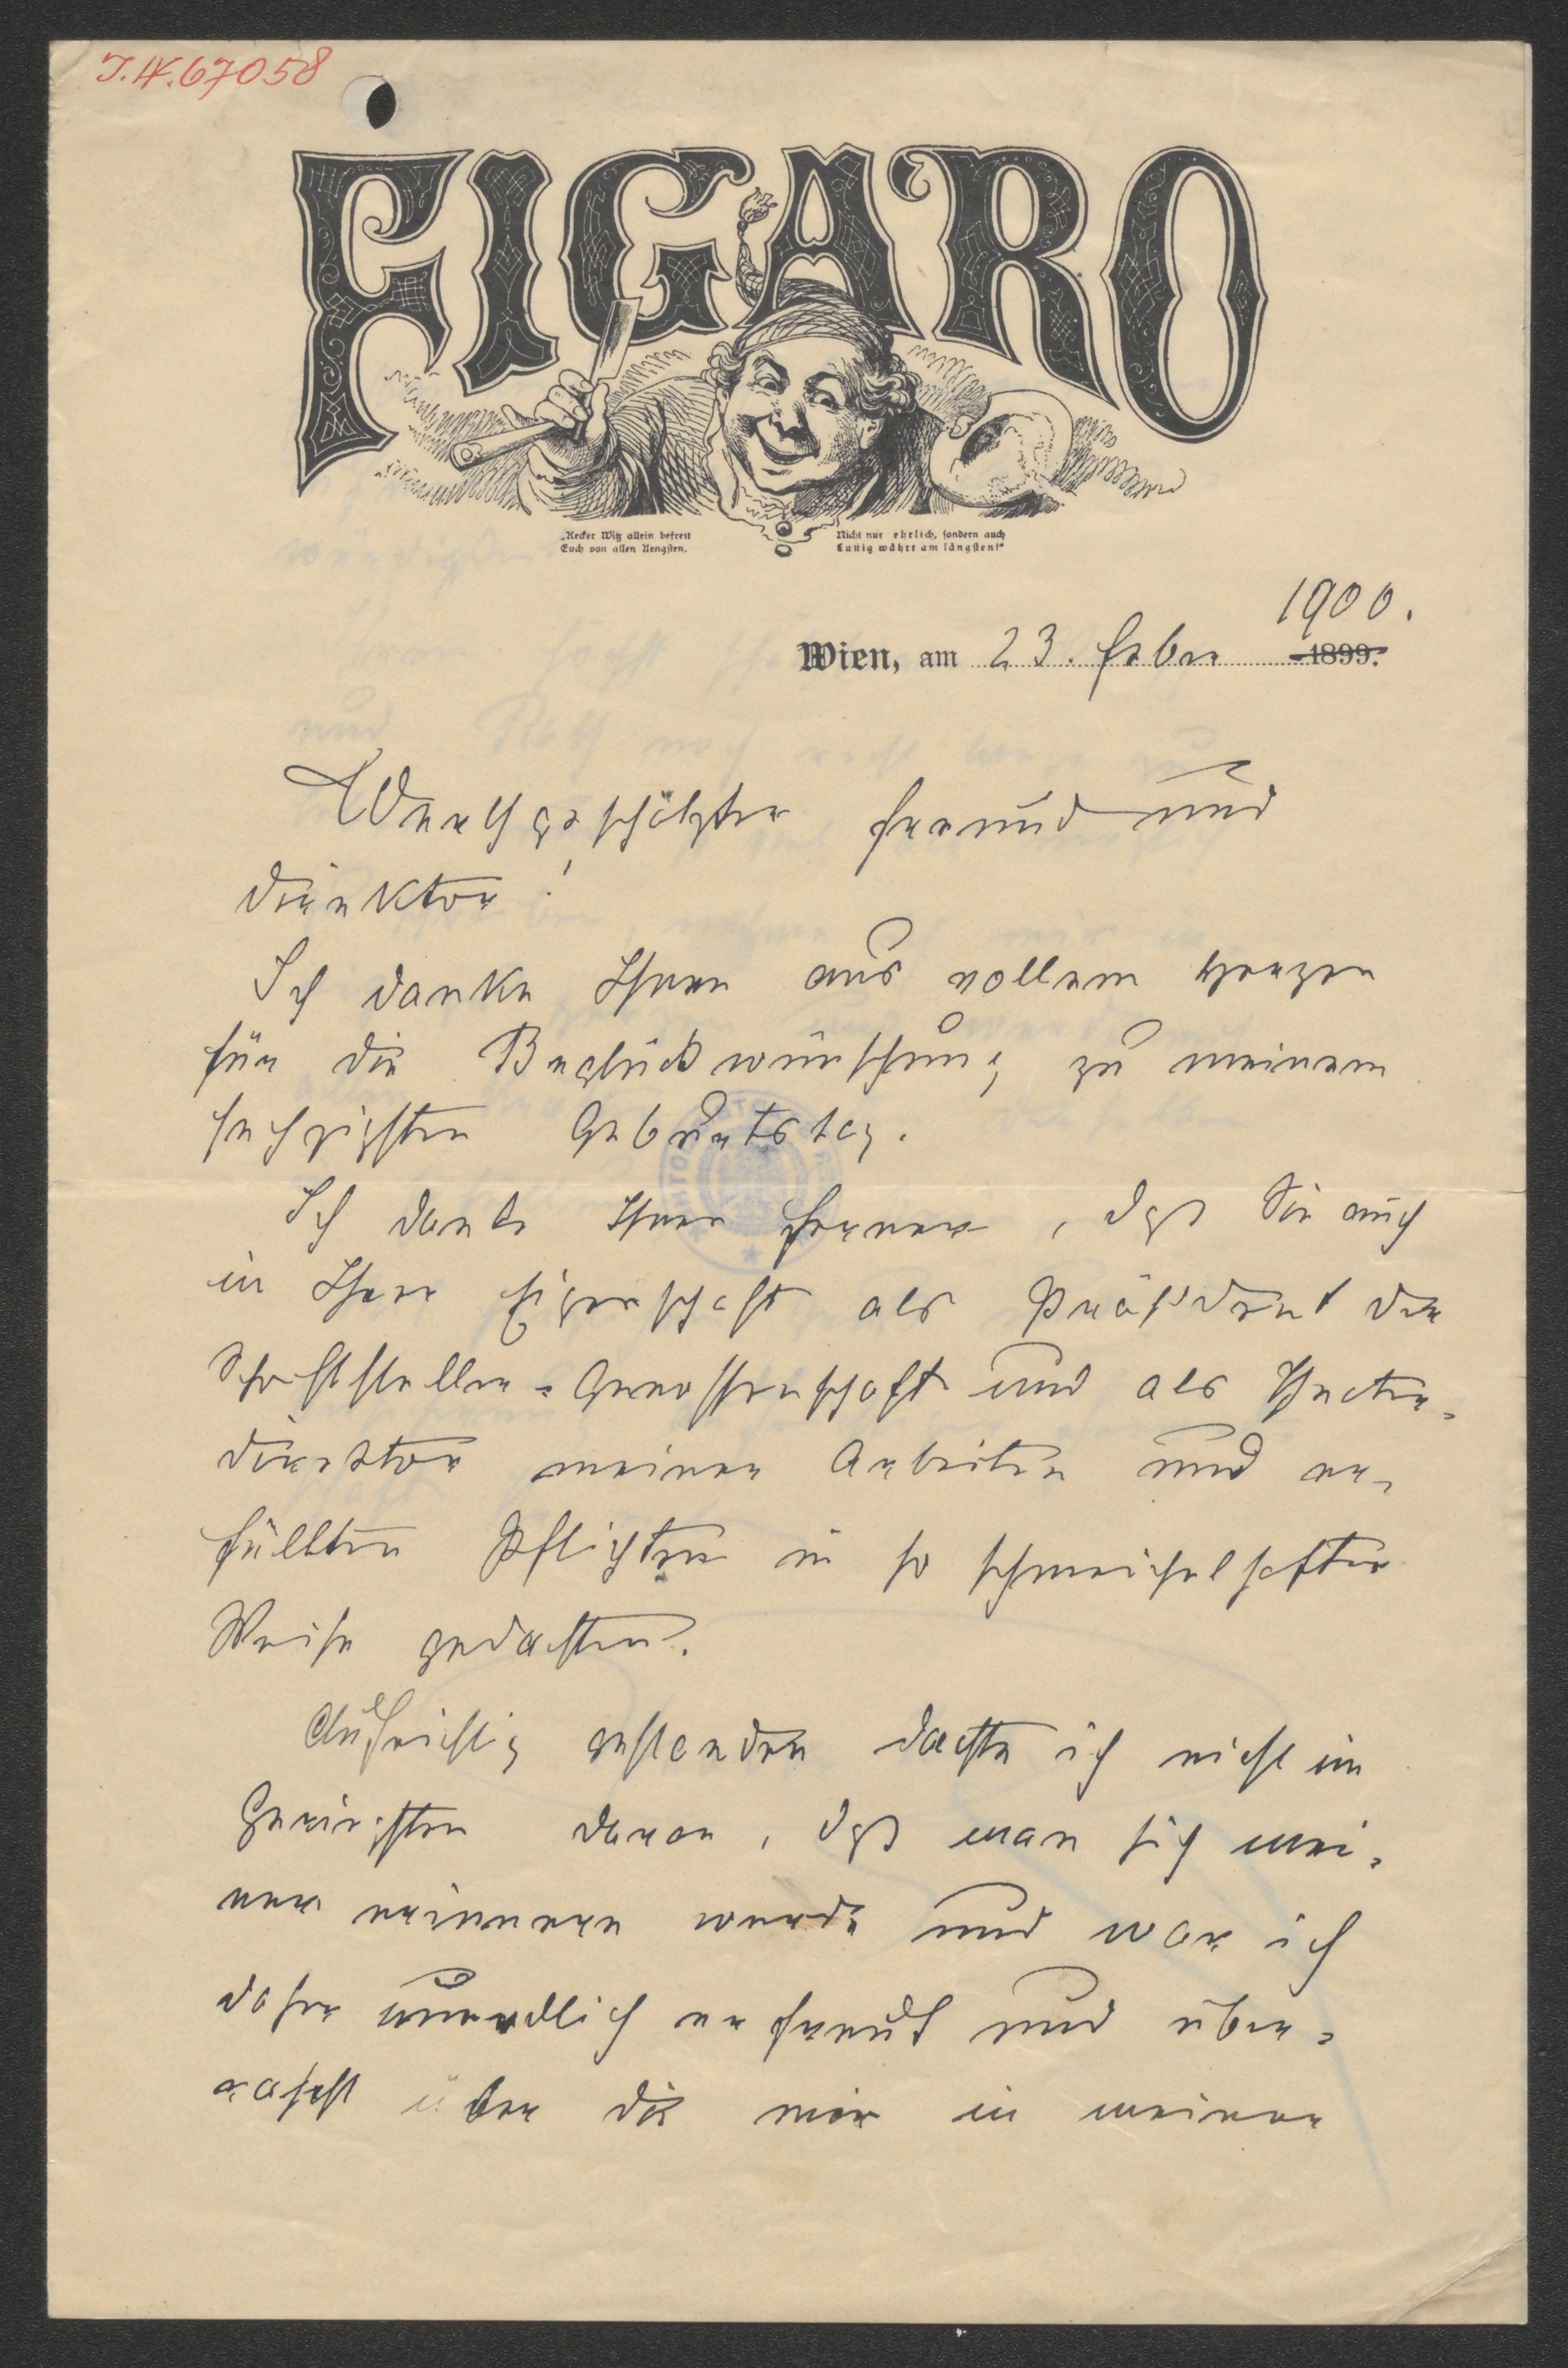 J.N. 67058
FIGARO
„Kecker Witz allein befreit
Euch von allen Aengsten,
Nicht nur ehrlich, sondern auch
Lustig währt am längsten!“
1900.
Wien, am 23. Feber 1899.
Werthgeschätzter Freund und
Direktor!
Ich danke Ihnen aus vollem Herzen
für die Beglückwünschung zu meinem
sechzigsten Geburtstag.
Ich danke Ihnen ferner, daß Sie auch
in Ihrer Eigenschaft als Präsident der
Schriftsteller-Genossenschaft und als Theater-
direktor meiner Arbeiten und er-
füllten Pflichten in so schmeichelhafter
Weise gedachten.
Aufrichtig gestanden dachte ich nicht im
Geringsten daran, daß man sich mei-
ner erinnern werde und war ich
daher unendlich erfreut und über-
rascht über die mir in meiner